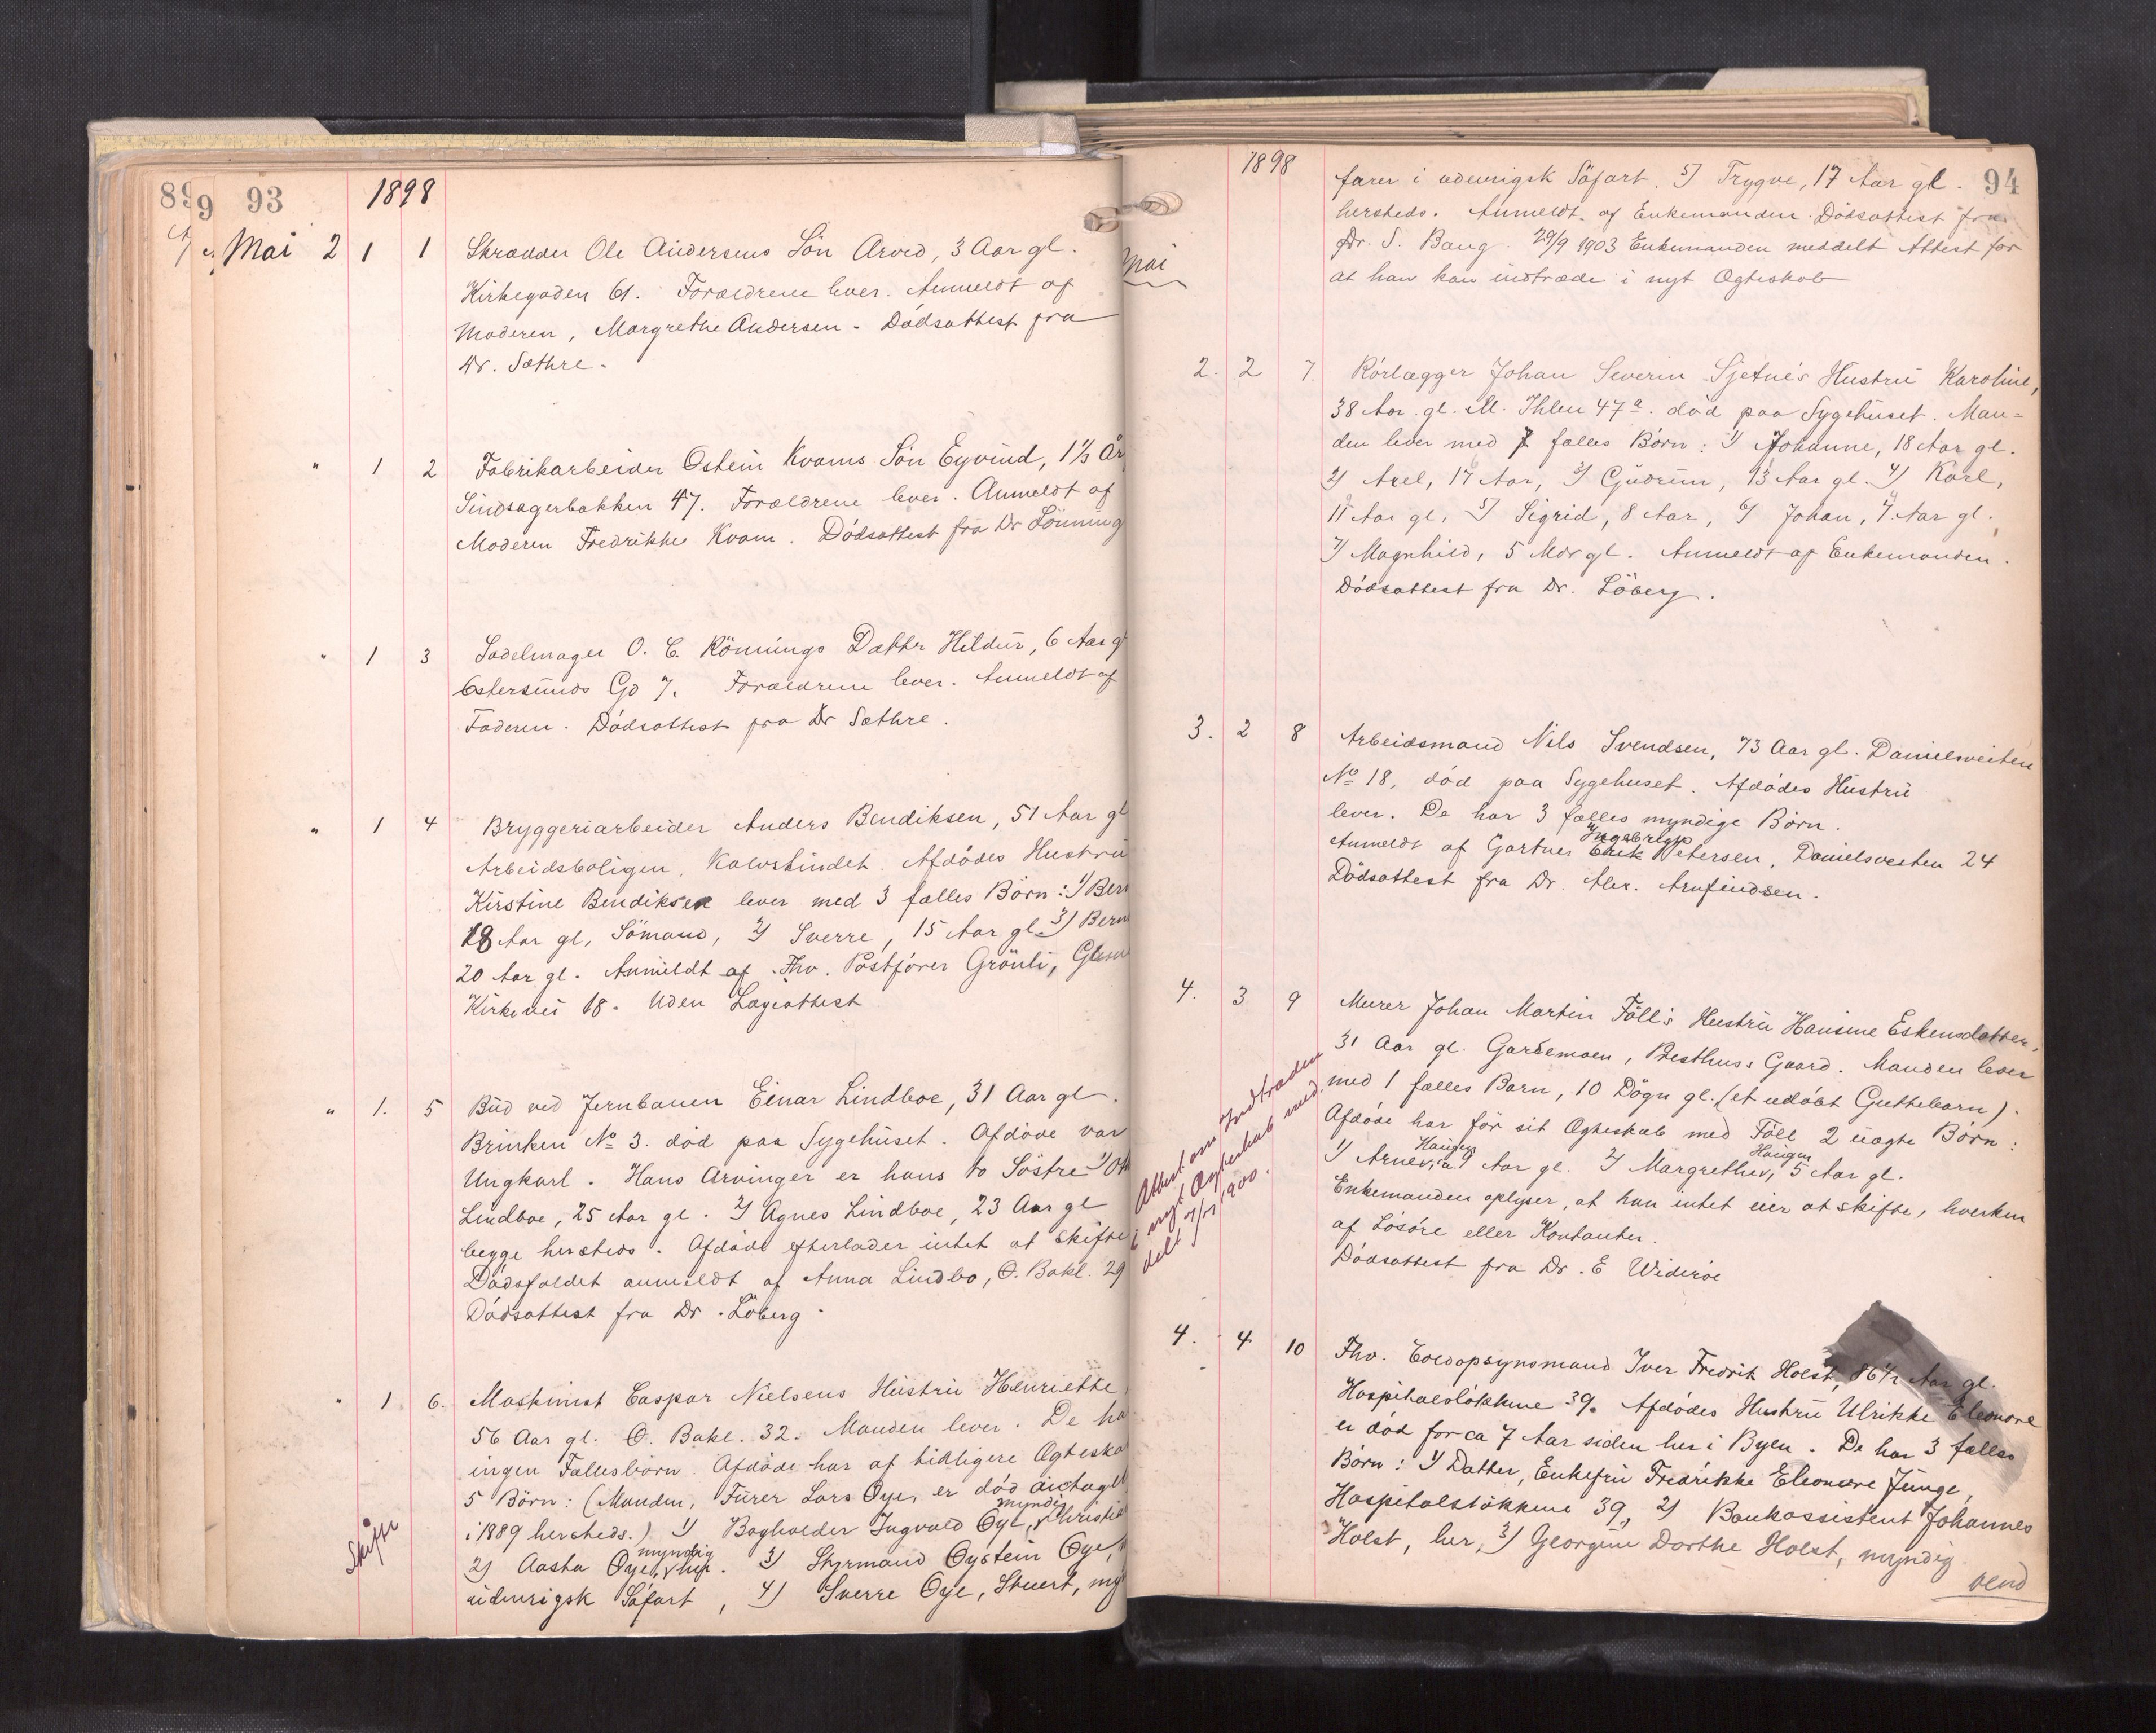 89
9
93
1898
Mai 2 1 1 Skrædder Ole Andersens Sön Arvid, 3 Aar gl.
Kirkegaden 61. Forældrene lever. Anmeldt af
Moderen, Margrethe Andersen. Dödsattest fra
Dr. Sæthre.
" 1 2 Fabrikarbeider Ostein Kvams Sön Eyvind, 1 1/3 År
Sindsagerbakken 47. Forældrene lever. Anmeldt af
Moderen Fredrikke Kvam. Dödsattest fra Dr Lönning
" 1 3 Sadelmager O. C. Rönnings Datter Hildur, 6 Aar g
Östersunds Gd 7. Forældrene lever. Anmeldt af
Faderen. Dödsattest fra Dr Sæthre.
" 1 4 Bryggeriarbeider Anders Bendiksen, 51 Aar gl
Arbeidsboligen, Kalvskindet. Afdödes Hustru
Kirstine Bendiksen lever med 3 fælles Börn: 1) Ber
18 Aar gl, Sömand, 2) Sverre, 15 Aar gl 3) Bern
20 Aar gl. Anmeldt af Fhv. Postförer Grönli,
Kirkevei 18. Uden Lægeattest
" 1. 5 Bud ved Jernbanen Einar Lindboe, 31 Aar gl.
Brinken No 3. död paa Sygehuset. Afdöde var
Ungkarl. Hans Arvinger er hans to Söstre 1)
Lindboe, 25 Aar gl. 2) Agnes Lindboe, 23 Aar gl
begge hersteds. Afdöde efterlader intet at skifte
Dödsfaldet anmeldt af Anna Lindbo, Ö. Bakl. 29
Dödsattest fra Dr. Löberg.
" 1 6. Maskinist Caspar Nielsens Hustru Henriette,
56 Aar gl. Ö. Bakl. 32. Manden lever. De ha
ingen Fællesbörn. Afdöde har af tidligere Ægteska
5 Börn: (Manden, Furer Lars Öye, er död
i 1889 hersteds.) 1) Bogholder Ingvald Öye, myndig
Skifte 2) Aasta Öye, myndig her. 3) Styrmand Öystein Öye,
udenrigsk Söfart, 4) Sverre Öye, Stuert, my
1898
94
Mai
farer i udenrigsk Söfart. 5) Trygve, 17 Aar gl.
hersteds. Anmeldt af Enkemanden. Dödsattest fra
Dr. S. Bang. 29/9 1903 Enkemanden meddelt Attest for
at han kan indtræde i nyt Ægteskab
2. 2 7. Rörlægger Johan Severin Sjetne's Hustru Karoline,
38 Aar gl. M. Ihlen 47a. död paa Sygehuset. Man-
den lever med 7 fælles Börn: 1) Johanne, 18 Aar gl.
2) Axel, 17 Aar, 3) Gudrun, 13 Aar gl. 4) Karl,
11 Aar gl, 5) Sigrid, 8 Aar, 6) Johan, 4 Aar gl.
7) Magnhild, 5 Mdr gl. Anmeldt af Enkemanden.
Dödsattest fra Dr. Löberg.
3. 2 8 Arbeidsmand Nils Svendsen, 73 Aar gl. Danielsveiten
No 18, död paa Sygehuset. Afdödes Hustru
lever. De har 3 fælles myndige Börn.
Anmeldt af Gartner Ingebrigt Petersen, Danielsveiten 24
Dödsattest fra Dr. Alex. Arnfindsen.
4. 3 9 Murer Johan Martin Föll's Hustru Hansine Eskensdatter,
31 Aar gl. Gardemoen, Presthus's Gaard. Manden lever
med 1 fælles Barn, 10 Dögn gl. (et udöbt Guttebarn).
Afdöde har för sit Ægteskab med Föll 2 uægte Börn:
1) Arne Haugen, 9 Aar gl. 2) Margrethe Haugen, 5 Aar gl.
Enkemanden oplyser, at han intet eier at skifte, hverken
af Lösöre eller Kontanter.
Dödsattest fra Dr. E Wideröe
Attest om Indtræden
i nyt Ægteskab med
delt 7/7 1900.
4. 4 10 Fhv. Toldopsynsmand Iver Fredrik Holst, 86 1/2 Aar gl.
Hospitalslökkene 39. Afdödes Hustru Ulrikke Eleonore
er död for ca 7 Aar siden her i Byen. De har 3 fælles
Börn: 1) Datter, Enkefru Fredrikke Eleonore Junge,
Hospitalslökkene 39, 2) Bankassistent Johannes
Holst, her, 3) Georgine Dorthe Holst, myndig.
vend